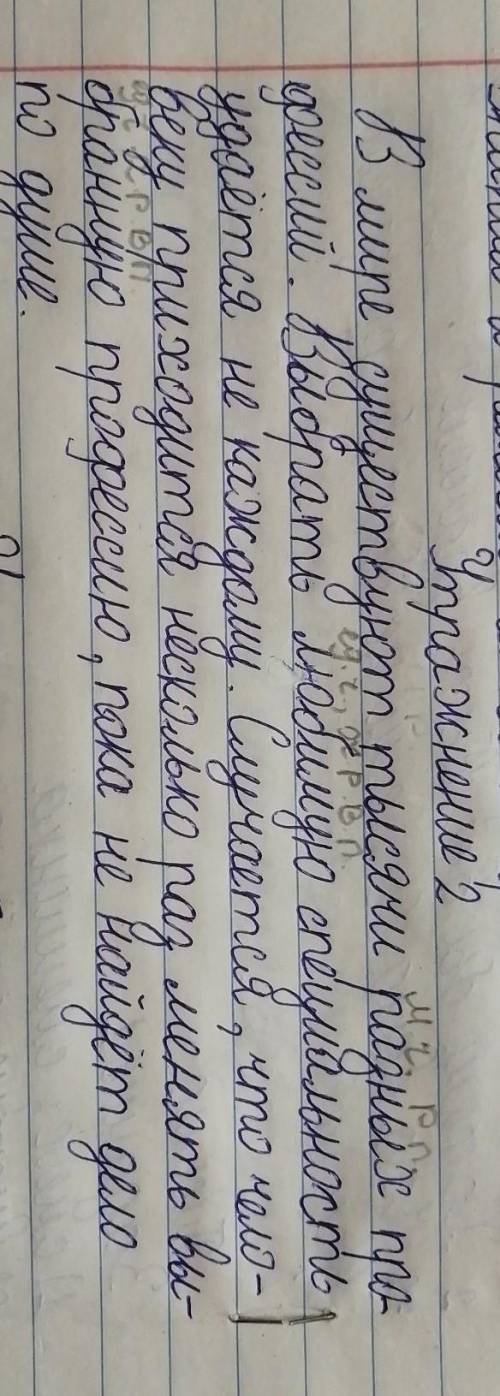 Упражнение 2
м.ч. Р.п.
В мире существуют тысячи разных про-
ед.ч., ж.р. В.п.
фессий. Выбрать любимую специальность
удаётся не каждому. Случается, что чело-
веку приходится несколько раз менять вы-
ед.ч. ж.р. В.п.
бранную профессию, пока не найдёт дело
по душе.